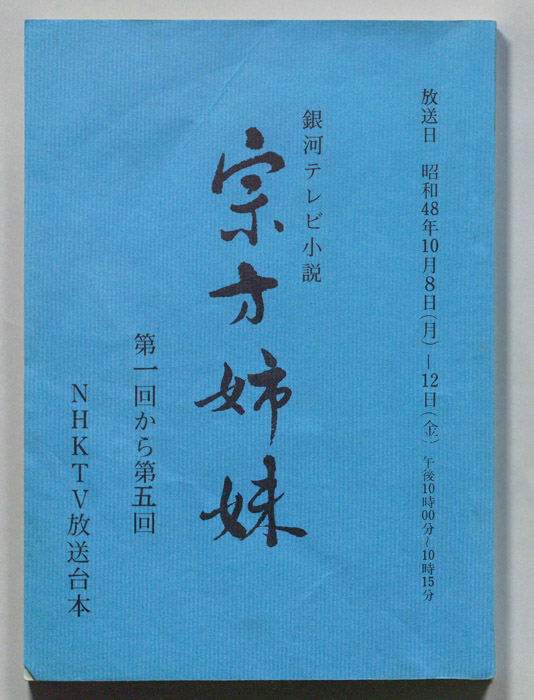 放送日　昭和48年10月8日(月)—12日(金)　午後10時00分~10時15分
銀河テレビ小説
宗方姉妹
第一回から第五回
NHKTV放送台本